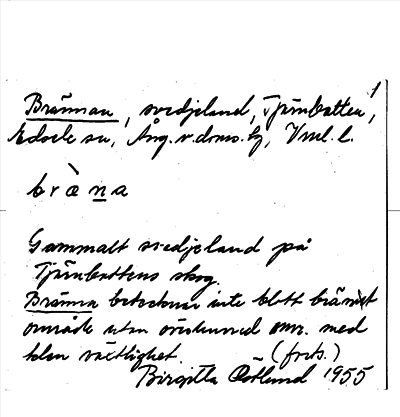 1
Brännan, svedjeland, Tjärnbotten,
Edsele sn, Ång. v. doms. fg, Vnl. l.
bræ̀na
Gammalt svedjeland på
Tjärnbottens skog.
Bränna betecknar inte blott bränt
område utan överhuvud omr. med
klen växtlighet. (forts.)
Birgitta Östlund 1955